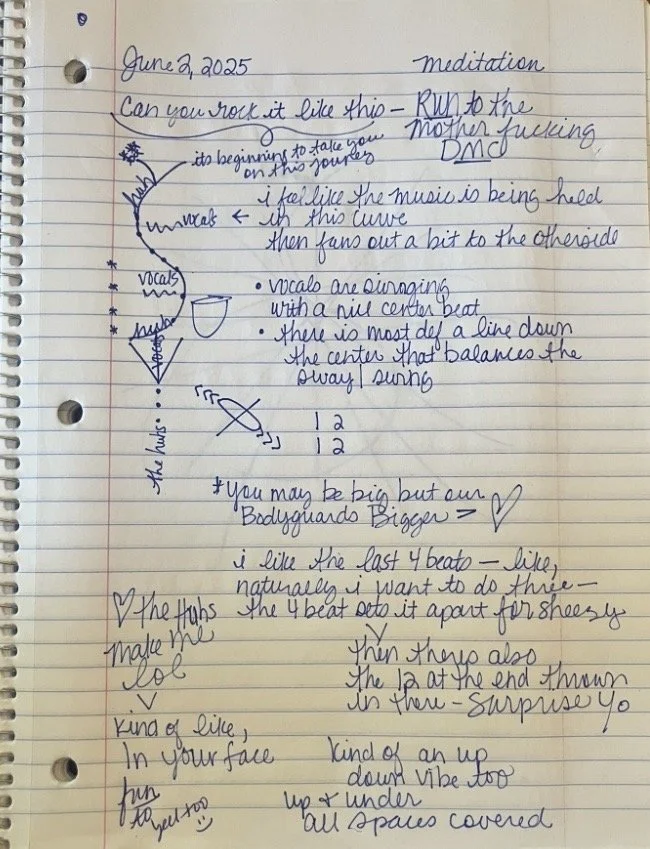 June 2, 2025
meditation
Can you rock it like this - RUN to the
mother fucking
DMC
its beginning to take you
on this journey
huh
i feel like the music is being held
vocals ← in this curve
then fans out a bit to the otherside
* vocals
*
• vocals are swinging
with a nice center beat
* huh
*
• there is most def a line down
the center that balances the
sway/swing
vocals
1 2
1 2
the huhs
*you may be big but our
Bodyguards Bigger =>
i like the last 4 beats - like,
naturally i want to do three -
the 4 beat sets it apart for sheezy
♡ the Huhs
make me
lol
then theres also
the 12 at the end thrown
in there - Surprise Yo
kind of like,
In your face
kind of an up
down vibe too
fun
to yell too :)
up + under
all spaces covered